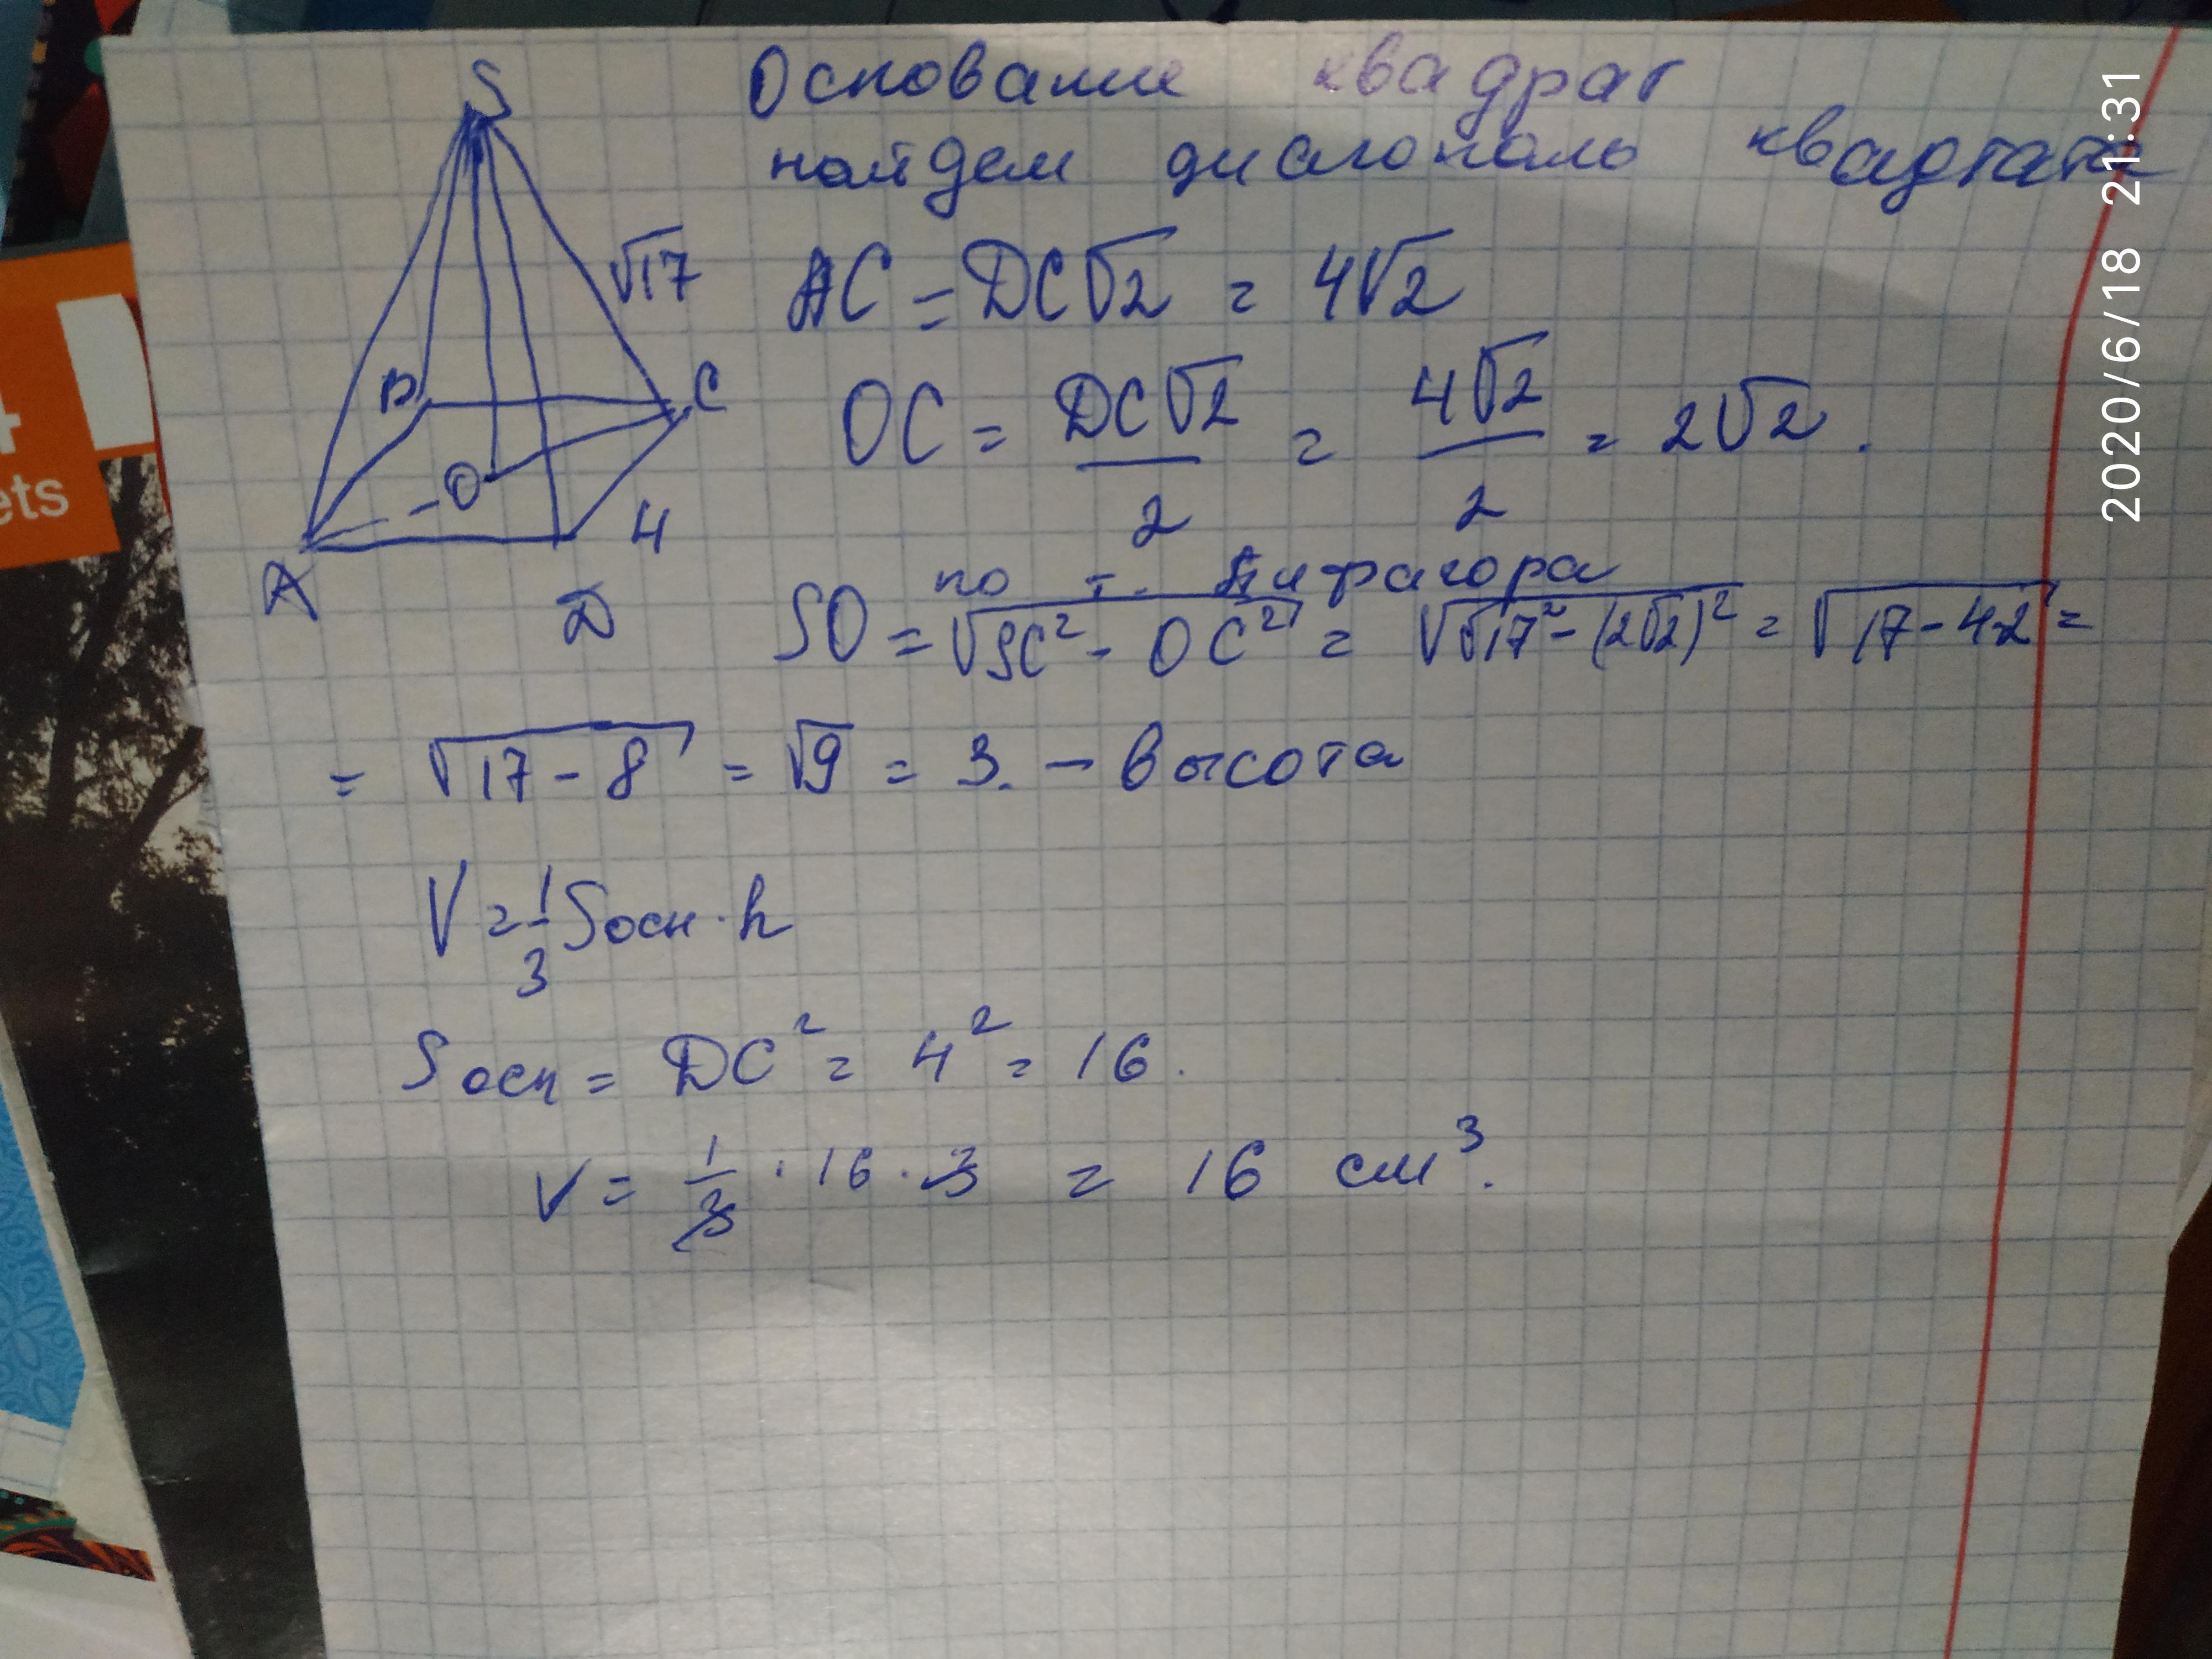 S
Основание квадрат
найдем диагональ квадрата
√17
AC = DC√2 = 4√2
B
C
OC = DC√2 / 2 = 4√2 / 2 = 2√2.
O
4
A
D
по т. Пифагора
SO = √SC² - OC² = √√17² - (2√2)² = √17 - 4·2 =
= √17 - 8 = √9 = 3. - высота
V = 1/3 Sосн · h
Sосн = DC² = 4² = 16.
V = 1/3 · 16 · 3 = 16 см³.
2020/6/18 21:31
4
ets